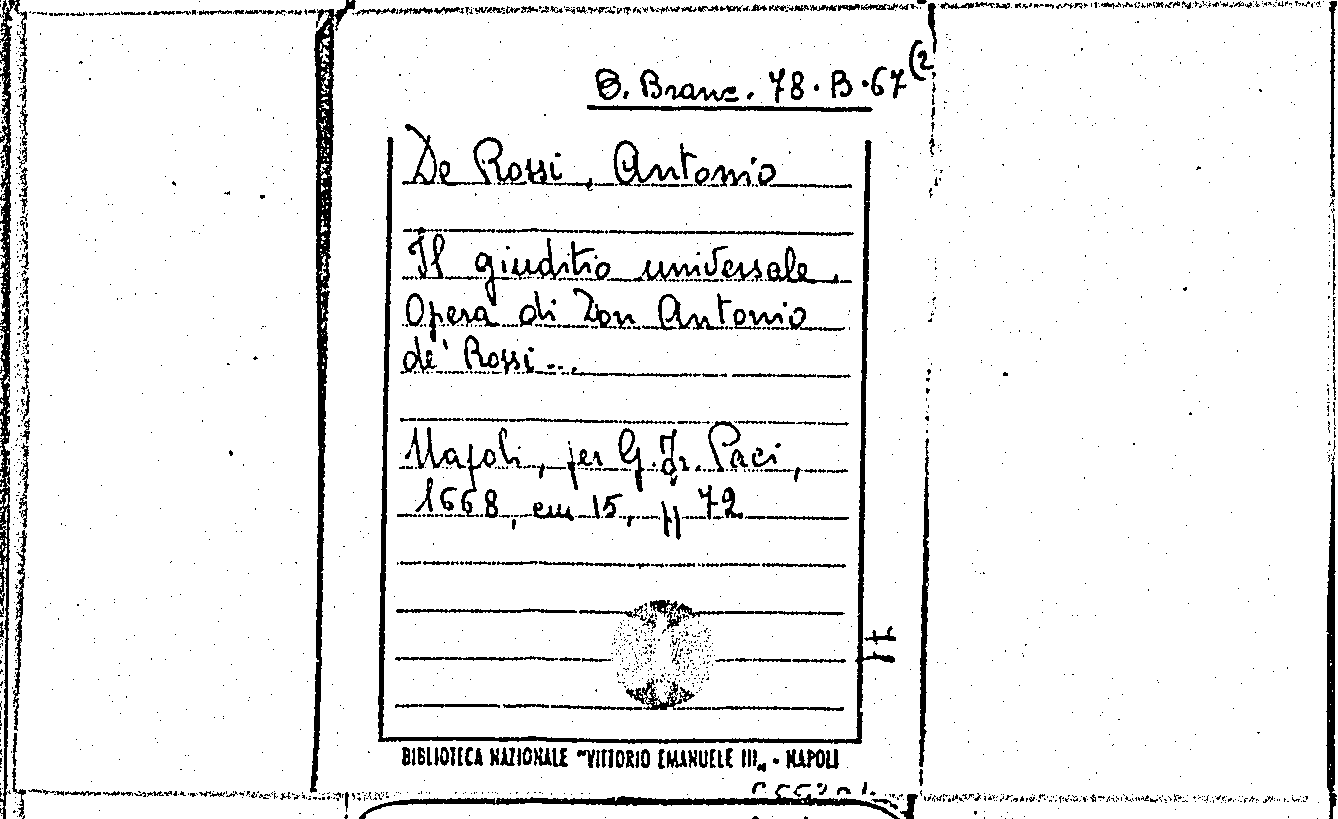 B. Branc. 78.B.67(2
De Rossi, Antonio
Il giuditio universale.
Opera di Don Antonio
de' Rossi...
Napoli, per G. Fr. Paci,
1668, cm 15, pp 72
BIBLIOTECA NAZIONALE "VITTORIO EMANUELE III„ - NAPOLI